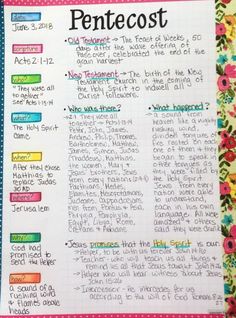 Pentecost
June 3, 2018
Acts 2:1-12
"They were all together"
See Acts 1:13-14
The Holy Spirit Came
when?
After they chose Matthias to replace Judas
Jerusalem
God had Promised to send the Helper
a sound of a rushing wind & flames above heads
Old Testament → The Feast of Weeks, 50
days after the wave offering of
Passover, celebrated the end of the
grain harvest
New Testament → The birth of the New
Testament Church in the coming of
the Holy Spirit to indwell all
Christ followers.
Who was there?
v.1 They were all
together Acts 1:13-14
Peter, John, James,
Andrew, Philip, Thomas,
Bartholomew, Matthew,
James, Simon, Judas
(Thaddeus), Matthias,
the women, Mary &
Jesus' brothers, Jews
from every nation
Parthians, Medes,
Elamites, Mesopotamians,
Judeans, Cappadocians,
Pontus & Asia,
Phrygia, Pamphylia,
Egypt, Libya, Rome,
Cretans & Arabians
What happened?
a sound from
heaven like a mighty
rushing wind,
divided tongues of
fire rested on each
one of them & they
began to speak in
other tongues as
they were filled by
the Holy Spirit
Jews from every
nation were able to
understand,
each in his own
language. All were
amazed & others
said they were drunk
Jesus promises that the Holy Spirit is our
Helper, to be with us forever John 14:16
Teacher - who will teach us all things &
remind us all that Jesus taught John 14:26
Helper who will bear witness about Jesus
John 15:26
Intercessor - He intercedes for us
according to the will of God Romans 8:26